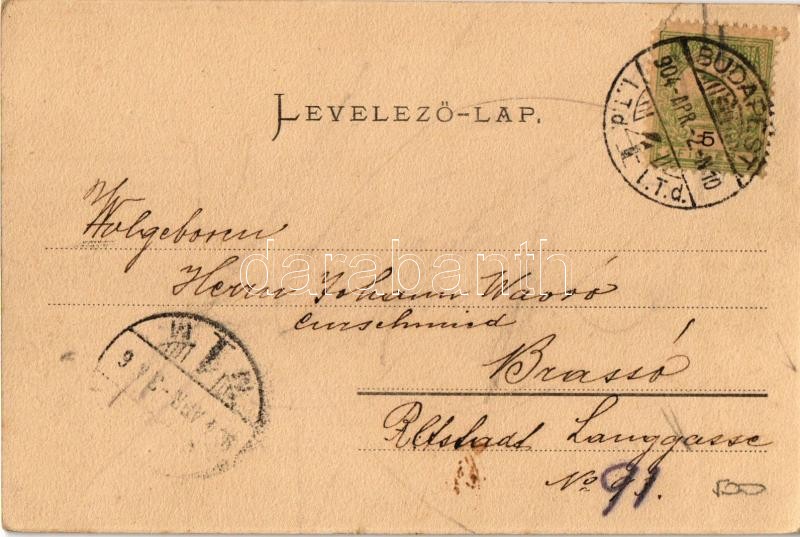 LEVELEZŐ-LAP.
BUDAPEST
904-APR.-2-N10
I.T.d.
I.T.d.
5
Wolgeboren
Herrn Johann Wavró
curschmied
Brassó
Altstadt Langgasse
No 91.
500
darabanth